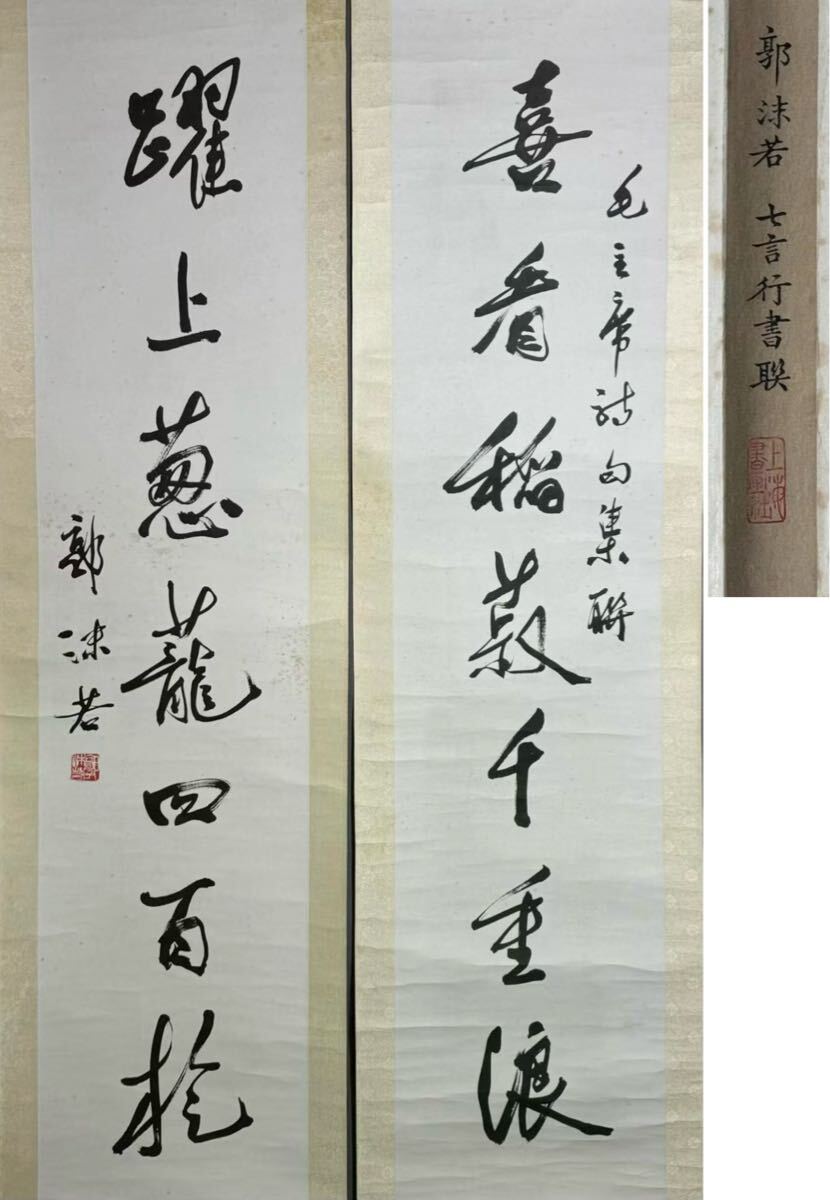 毛主席詩句集聯
喜看稻菽千重浪
躍上蔥蘢四百旋
郭沫若
郭沫若 七言行書聯